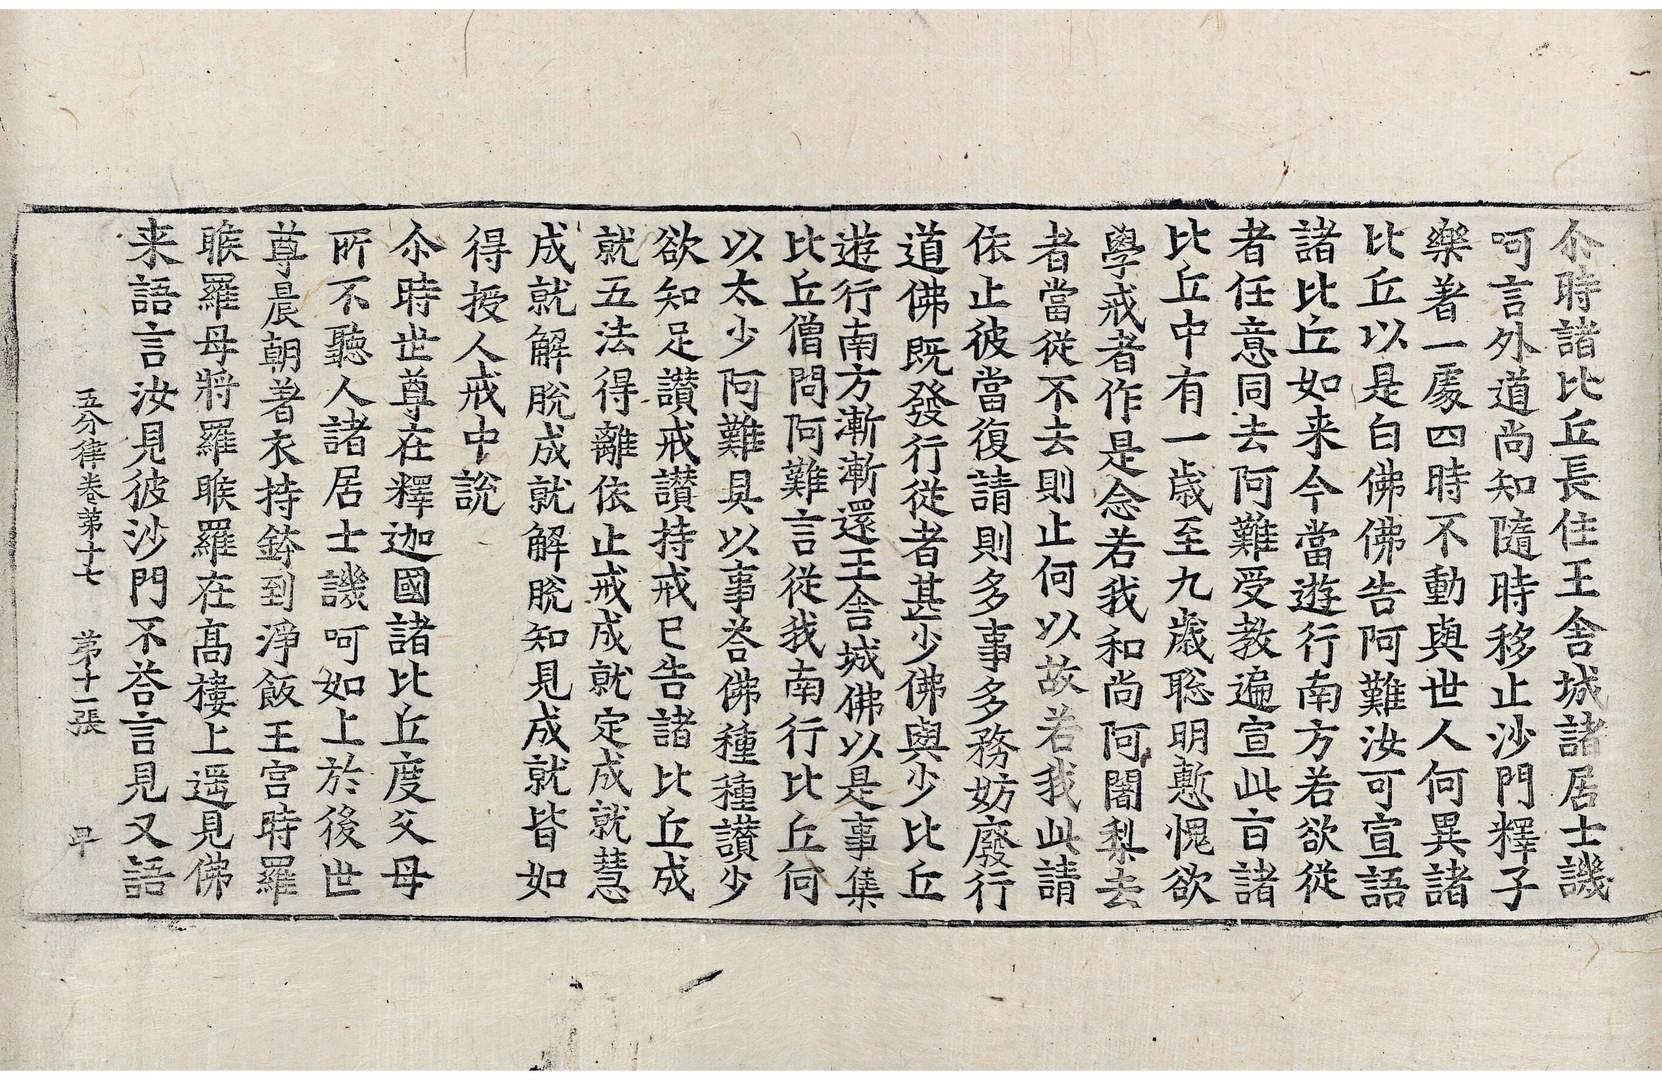 尒時諸比丘長住王舎城諸居士譏
呵言外道尚知隨時移止沙門釋子
樂著一處四時不動與世人何異諸
比丘以是白佛佛告阿難汝可宣語
諸比丘如来今當遊行南方若欲從
者任意同去阿難受教遍宣此言諸
比丘中有一歲至九歲聡明慙愧欲
學戒者作是念若我和尚阿闍梨去
者當從不去則止何以故若我此請
依止彼當復請則多事多務妨廢行
道佛既發行從者甚少佛與少比丘
遊行南方漸漸還王舎城佛以是事集
比丘僧問阿難言從我南行比丘何
以太少阿難具以事荅佛種種讃少
欲知足讃戒讃持戒已告諸比丘成
就五法得離依止戒成就定成就慧
成就解脫成就解脫知見成就皆如
得授人戒中說
尒時世尊在釋迦國諸比丘度父母
所不聽人諸居士譏呵如上於後世
尊晨朝著衣持鉢到淨飯王宮時羅
睺羅母將羅睺羅在高樓上遥見佛
来語言汝見彼沙門不荅言見又語
五分律卷第十七 第十一張